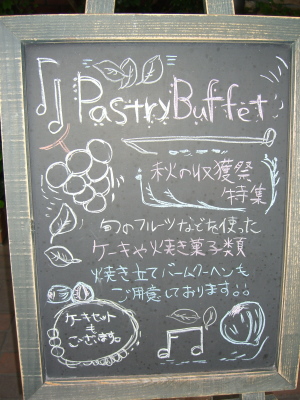 Pastry Buffet
秋の収穫祭
特集
旬のフルーツなどを使った
ケーキや焼き菓子類
焼き立てバームクーヘンも
ご用意しております!!
ケーキセット
も
ございます。